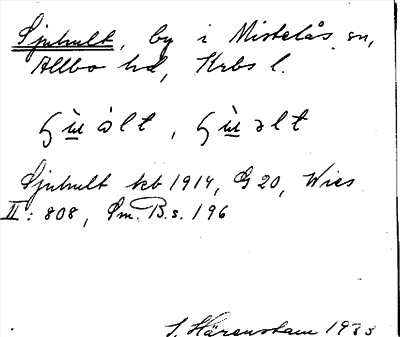 Sjuhult, by i Mistelås sn,
Allbo hd, Krbs l.
Sjuhult kb 1914, G 20, Wies
II: 808, Sm. B. s. 196
S. Härenstam 1933